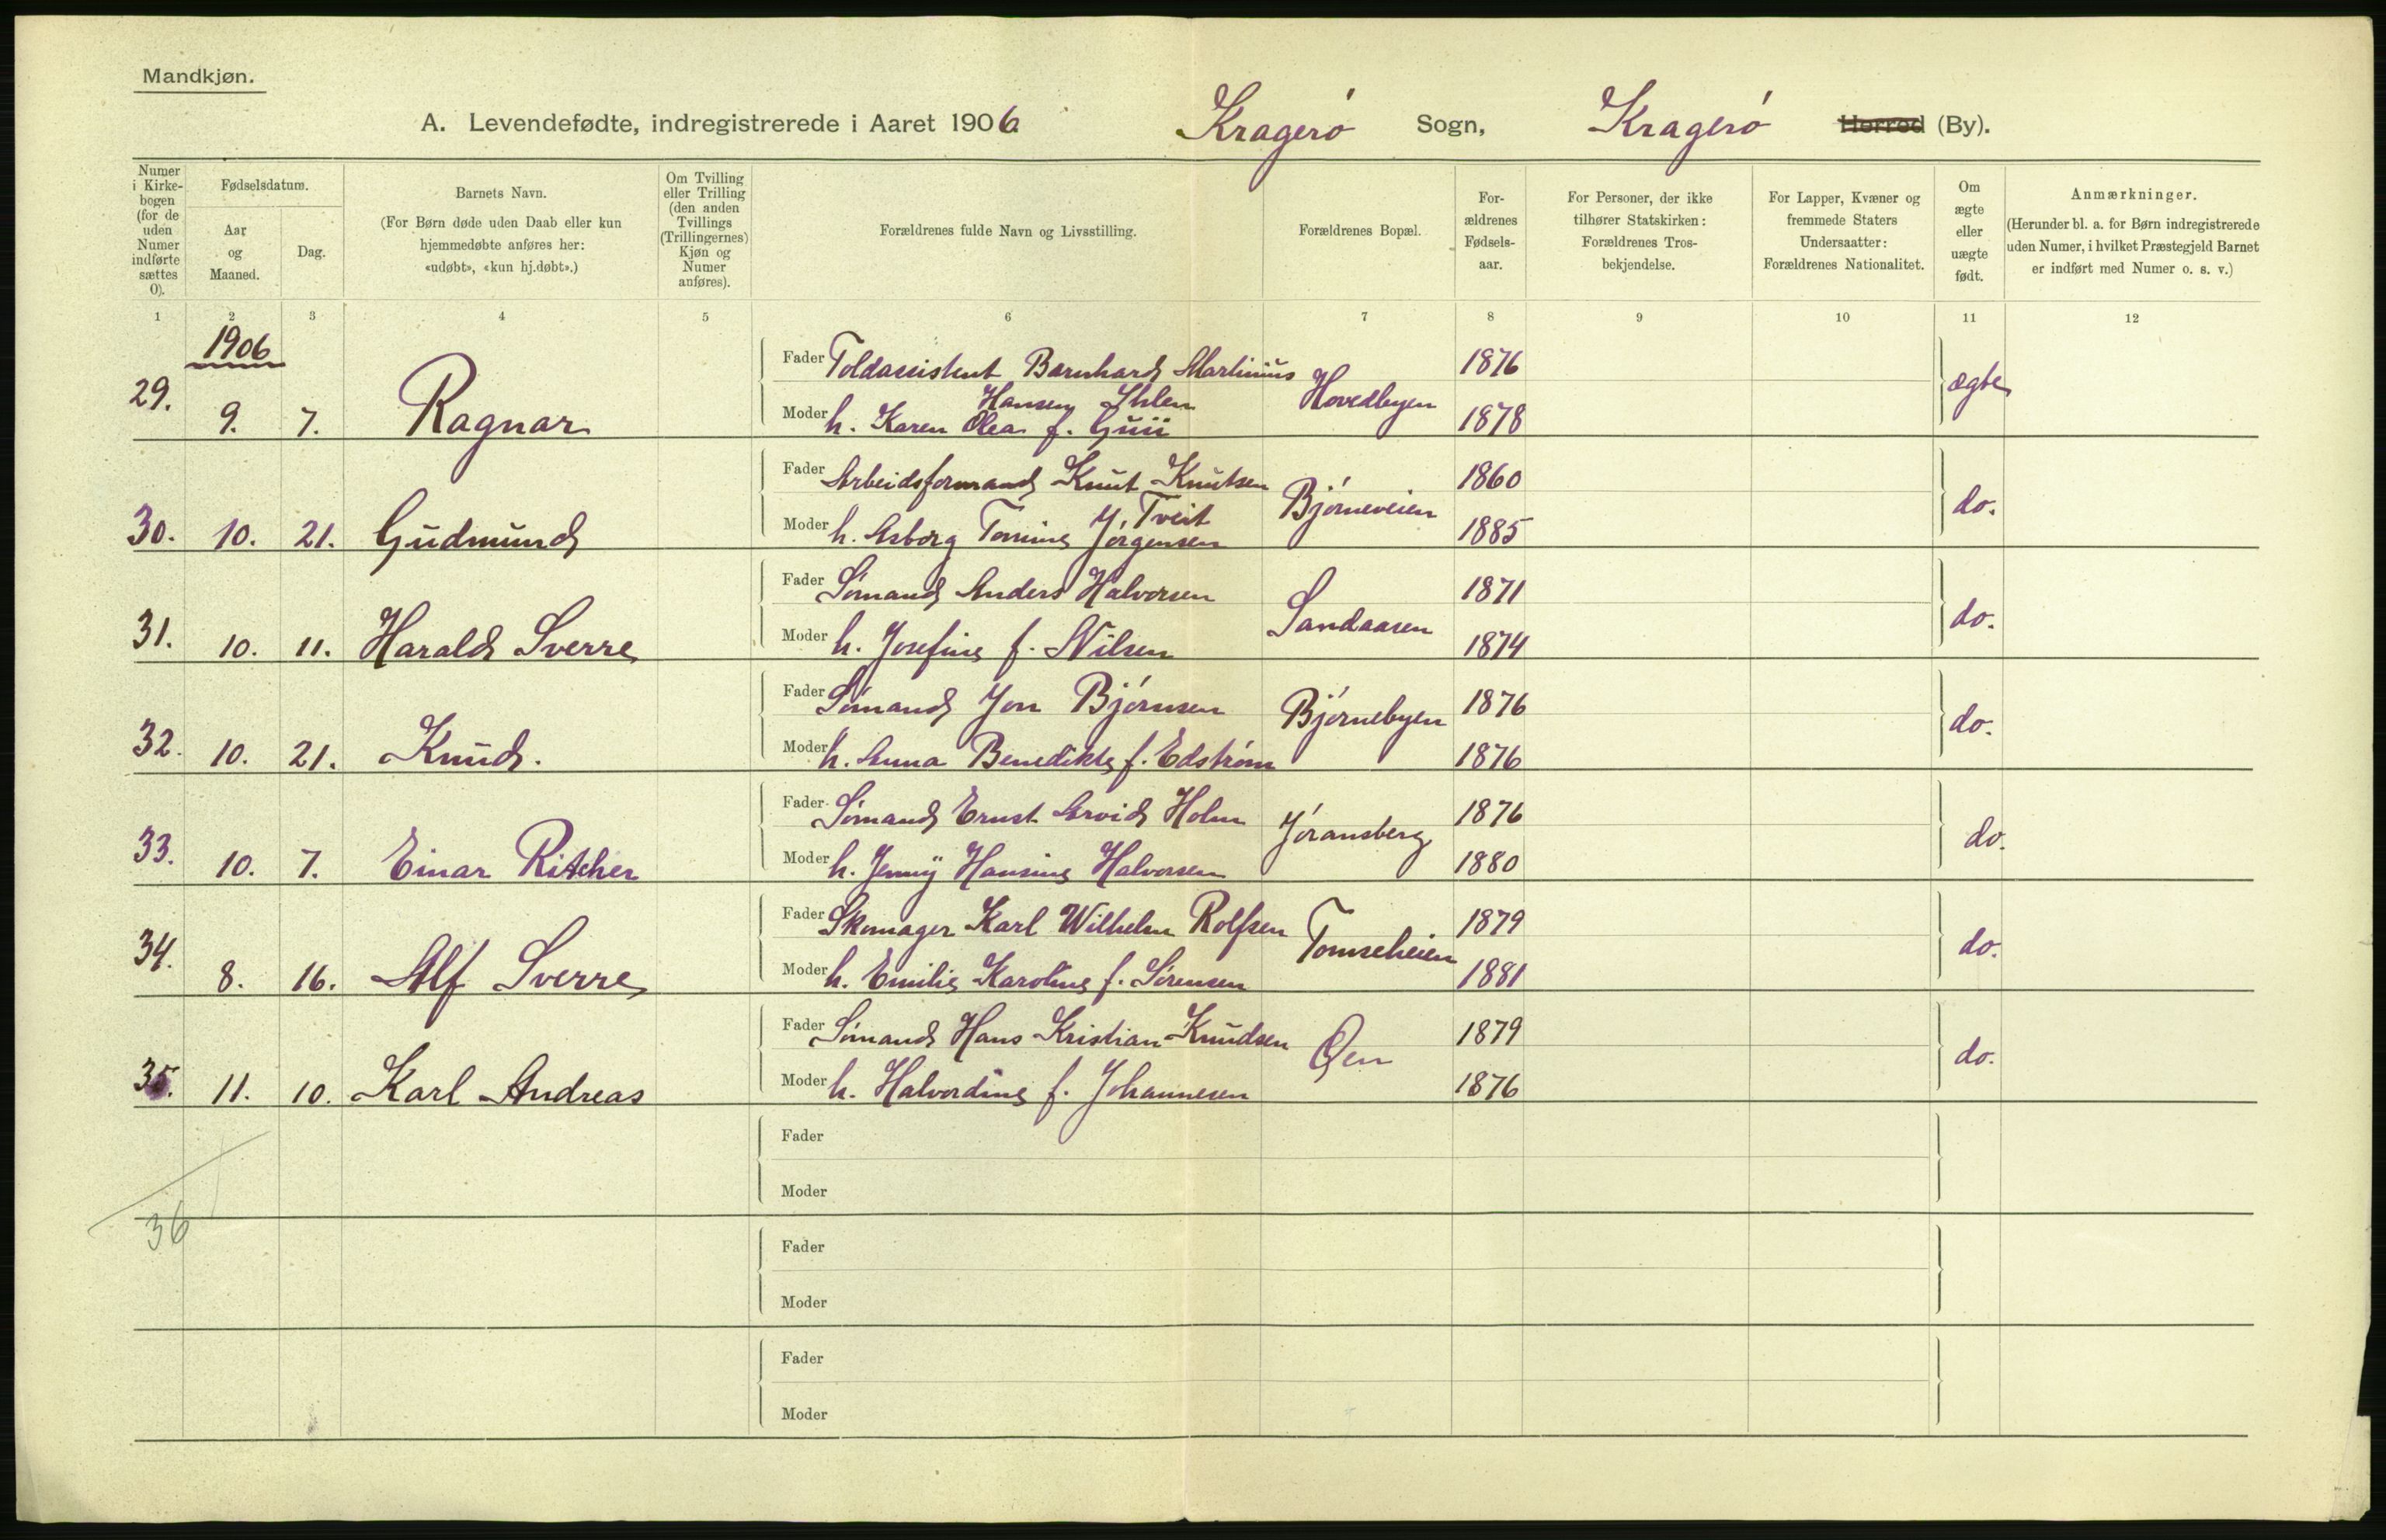 Mandkjøn.
A. Levendefødte, indregistrerede i Aaret 1906 Kragerø Sogn, Kragerø Herred (By).
Numer i Kirke-bogen (for de uden Numer indførte sættes 0).
Fødselsdatum.
Aar og Maaned.
Dag.
Barnets Navn.
(For Børn døde uden Daab eller kun hjemmedøbte anføres her: «udøbt», «kun hj.døbt».)
Om Tvilling eller Trilling (den anden Tvillings (Trillingernes) Kjøn og Numer anføres).
Forældrenes fulde Navn og Livsstilling.
Forældrenes Bopæl.
For-ældrenes Fødsels-aar.
For Personer, der ikke tilhører Statskirken: Forældrenes Tros-bekjendelse.
For Lapper, Kvæner og fremmede Staters Undersaatter: Forældrenes Nationalitet.
Om ægte eller uægte født.
Anmærkninger.
(Herunder bl. a. for Børn indregistrerede uden Numer, i hvilket Præstegjeld Barnet er indført med Numer o. s. v.)
1 2 3 4 5 6 7 8 9 10 11 12
1906
29. 9. 7. Ragnar
Fader Toldassistent Bernhard Martinius Hansen Ihlen Hovedbyen 1876 ægte
Moder h. Karen Olea f. 1878
30. 10. 21. Gudmund
Fader Arbeidsformand Knut Knutsen Tveit Bjørneveien 1860 do.
Moder h. Asborg Tomine Jørgensen 1885
31. 10. 11. Harald Sverre
Fader Sømand Anders Halvorsen Sandaasen 1871 do.
Moder h. Josefine f. Nilsen 1874
32. 10. 21. Knud.
Fader Sømand Jon Bjørnsen Bjørnebyen 1876 do.
Moder h. Anna Benedikte f. Edstrøm 1876
33. 10. 7. Einar Ritcher
Fader Sømand Ernst Arvid Holm Jøransberg 1876 do.
Moder h. Jenny Hansine Halvorsen 1880
34. 8. 16. Alf Sverre
Fader Skomager Karl Wilhelm Rolfsen Tomseheien 1879 do.
Moder h. Emilie Karoline f. Sørensen 1881
35. 11. 10. Karl Andreas
Fader Sømand Hans Kristian Knudsen Øen 1879 do.
Moder h. Halvordine f. Johannesen 1876
Fader
Moder
36
Fader
Moder
Fader
Moder